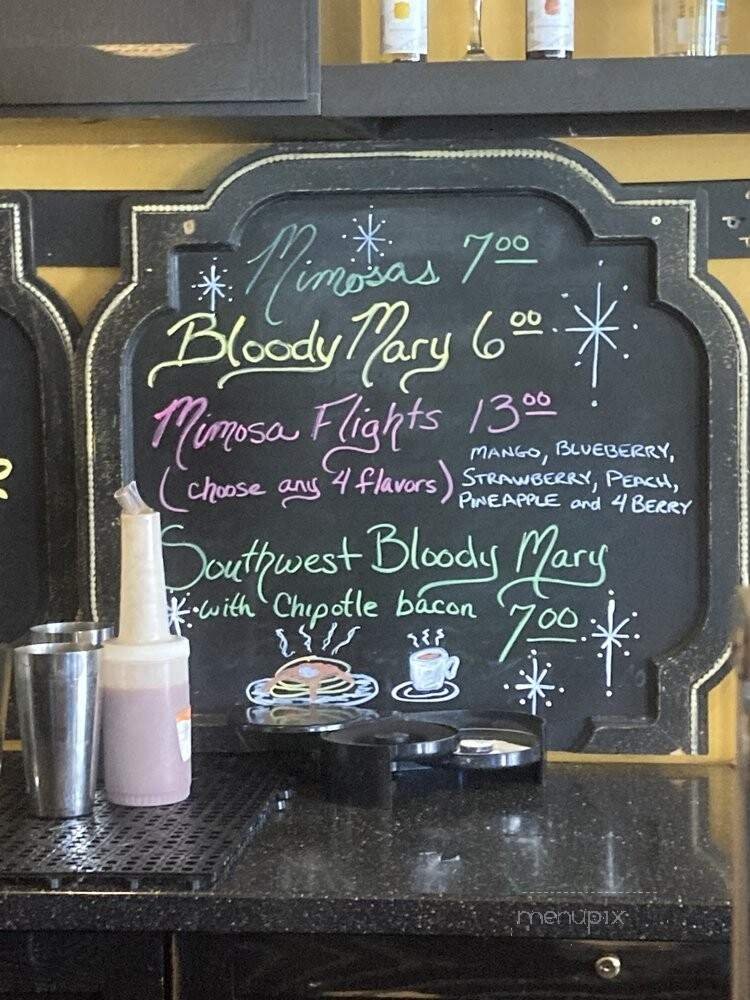 Mimosas 7.00
Bloody Mary 6.00
Mimosa Flights 13.00
(choose any 4 flavors)
MANGO, BLUEBERRY,
STRAWBERRY, PEACH,
PINEAPPLE and 4 BERRY
Southwest Bloody Mary
with Chipotle bacon 7.00
menupix